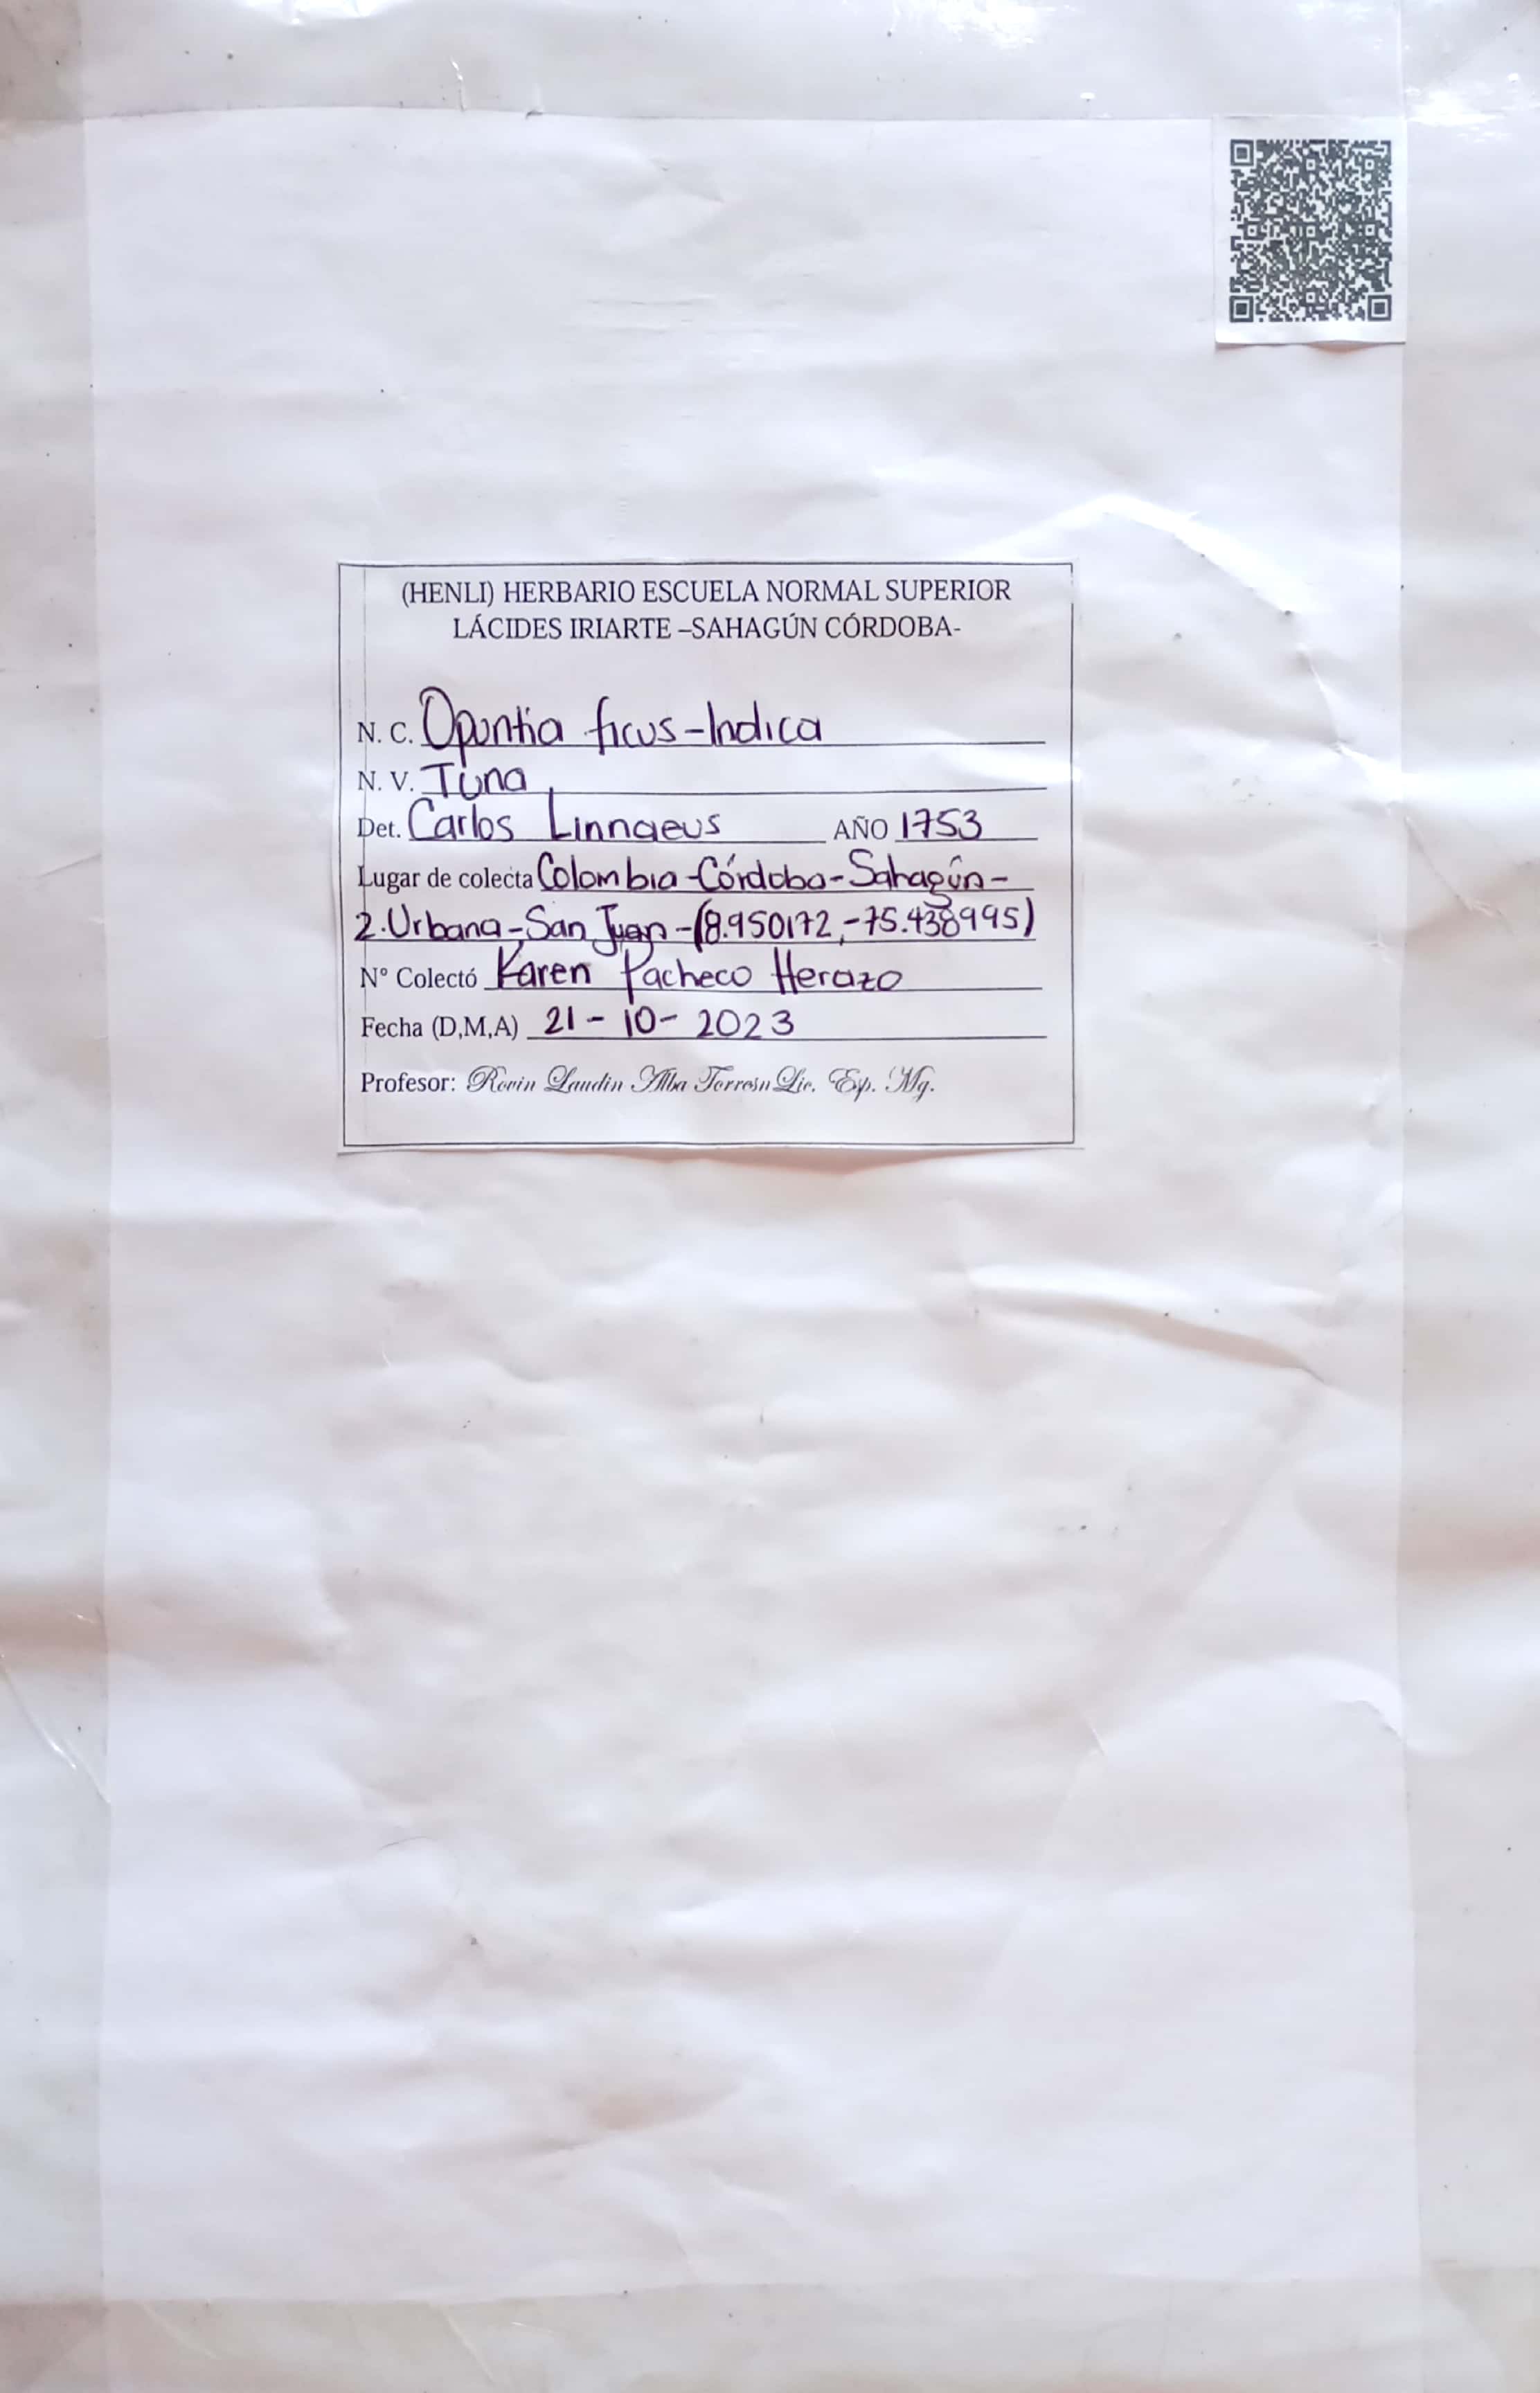 (HENLI) HERBARIO ESCUELA NORMAL SUPERIOR
LÁCIDES IRIARTE –SAHAGÚN CÓRDOBA-
N. C. Opuntia ficus-Indica
N. V. Tuna
Det. Carlos Linnaeus AÑO 1753
Lugar de colecta Colombia-Córdoba-Sahagún-
2.Urbana-San Juan-(8.950172,-75.438995)
N° Colectó Karen Pacheco Herazo
Fecha (D,M,A) 21-10-2023
Profesor: Rovin Laudin Alba Torresn Lic. Esp. Mg.